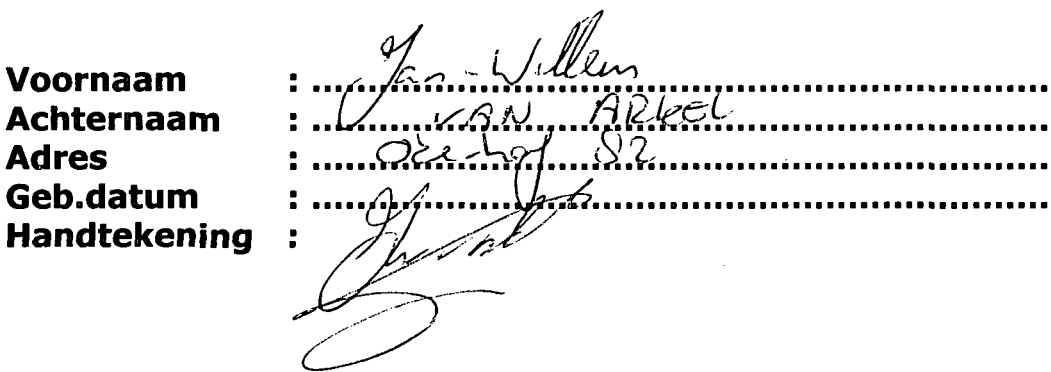 Voornaam : Jan-Willem
Achternaam : VAN ARKEL
Adres : 82
Geb.datum :
Handtekening :